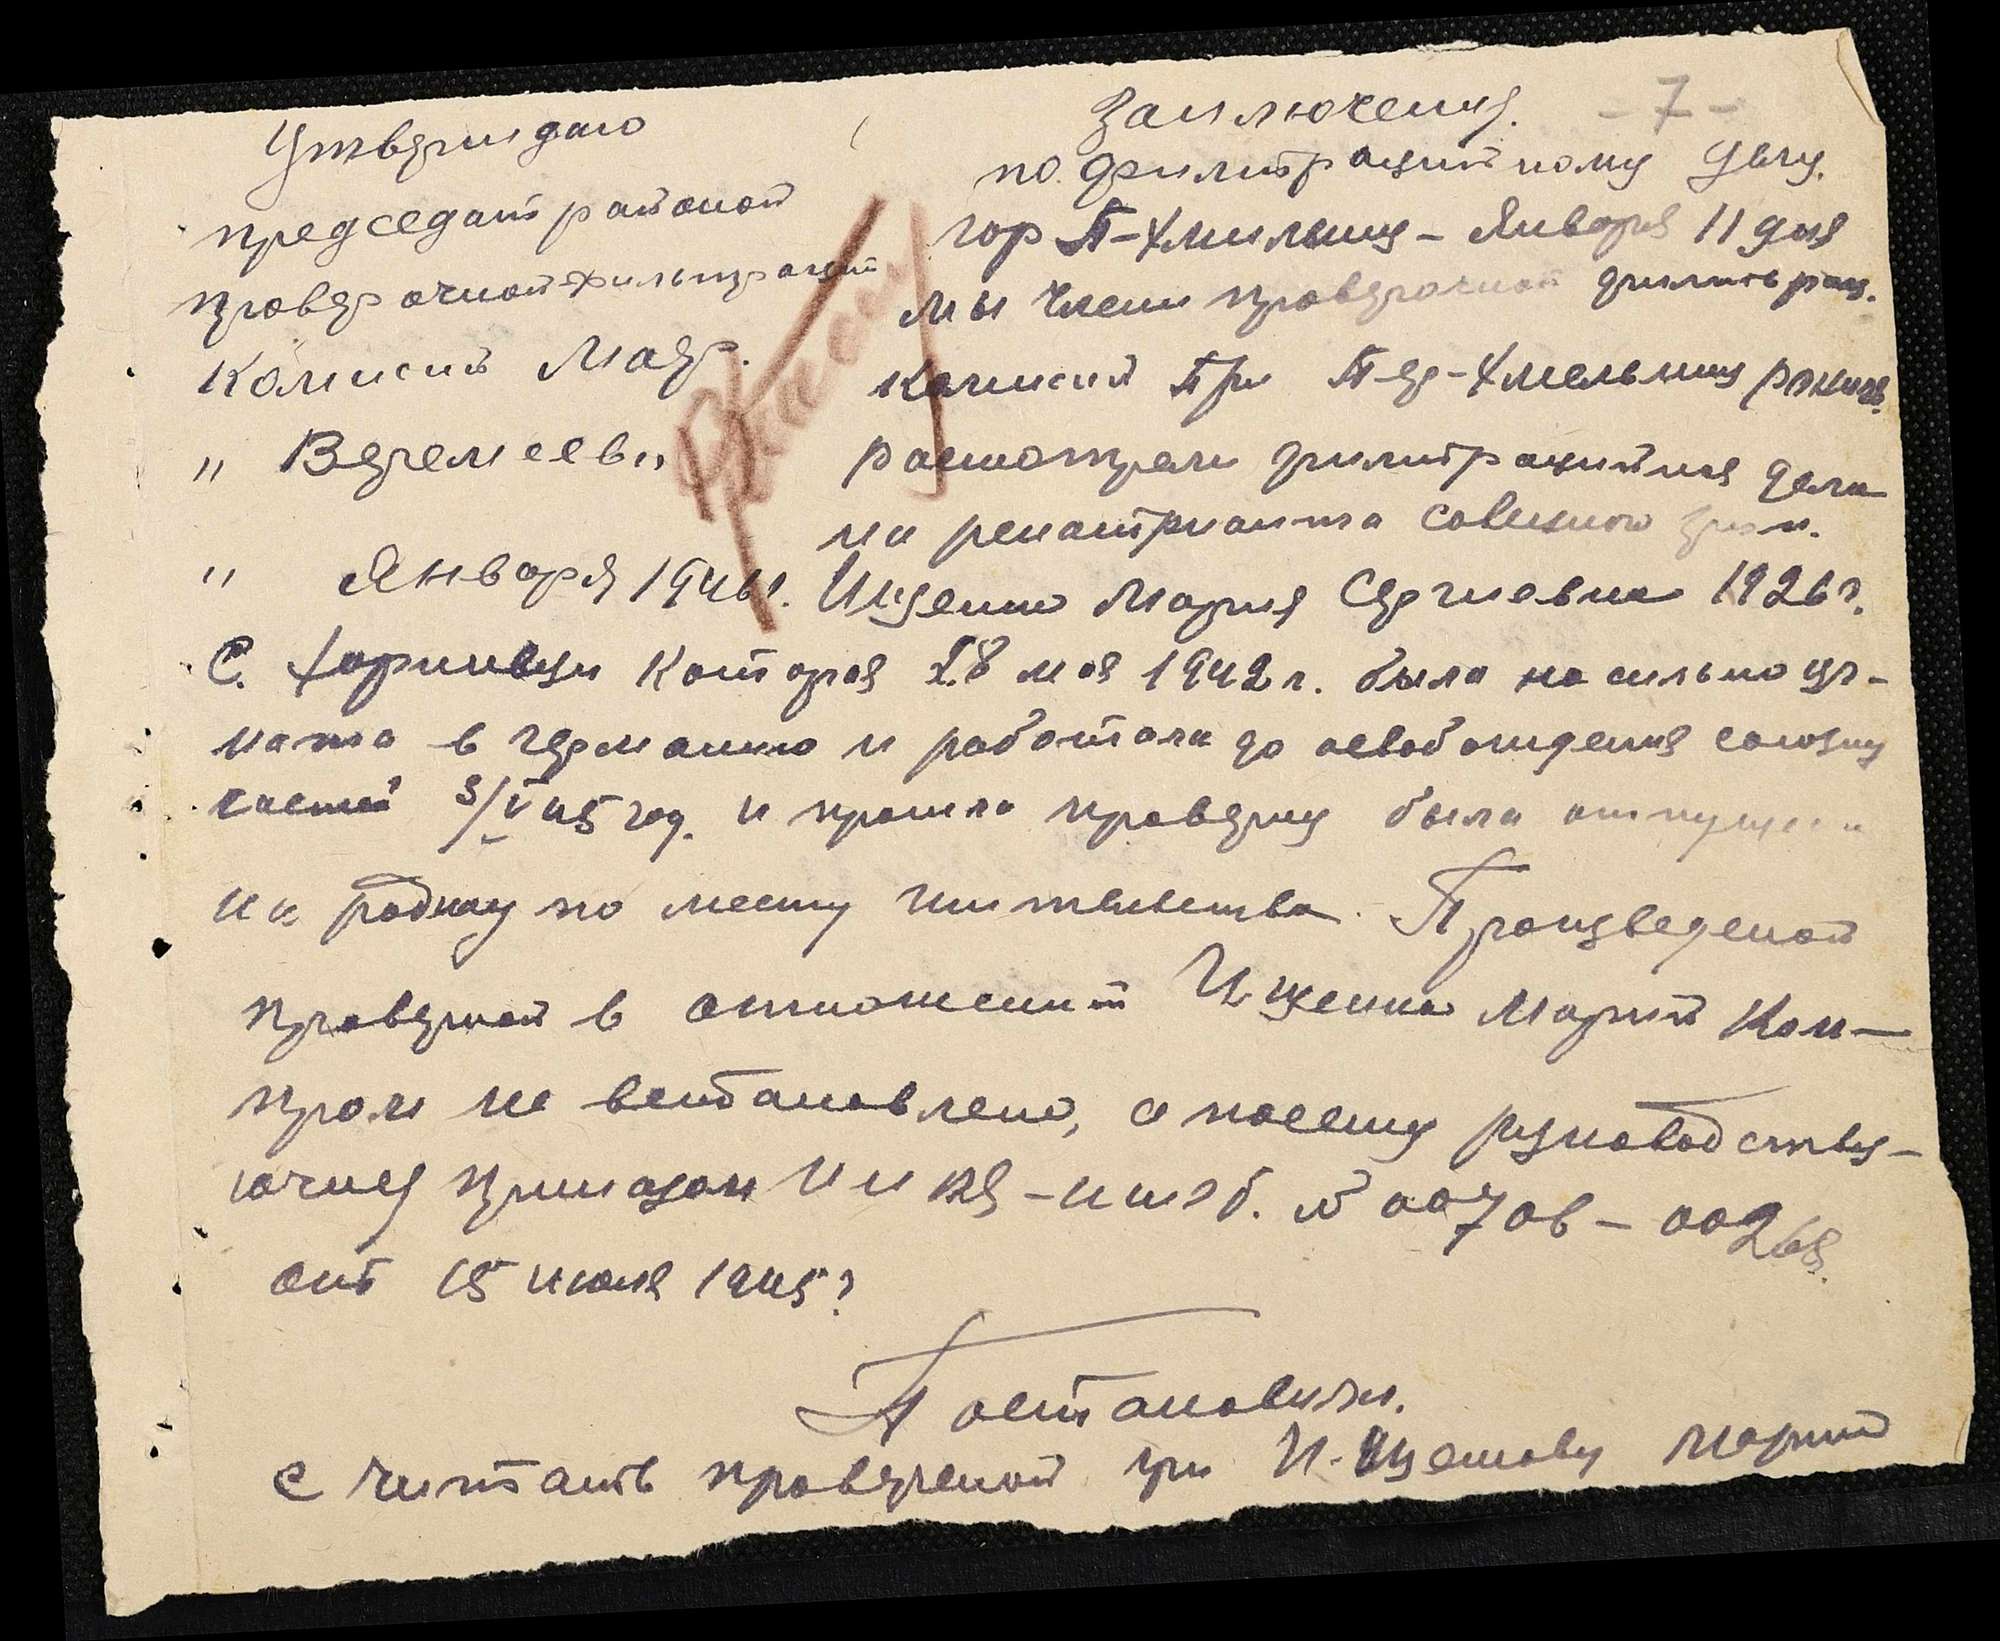 Утверждаю
председат районой
проверочной фильтраций
комисий Маер.
" Веремеев "
" Января 1946 г.
Заключения. - 7 -
по филитрацийному делу.
гор П-Хмильниц - Января 11 дня
мы члени проверочной филитьрац.
комисий При Пер-Хмельниц
расмотрели филитрацийная дела
на репатрианта
Ищенко Мария Сергиевна 1926 г.
С. которая 28 мая 1942 г. была насильно уг-
ната в германию и работала до освобождения союзну
частей 3/V 45 год. и прошла проверку была отпущена
на родину по месту жительства. Произведеной
проверкой в отношений Ищенко Марий Ком-
пром не вастановлено, а поетму руководству-
ючись приказом № 00706 - 00268.
от 15 июля 1945 г
Постановили.
Считать проверной Марию